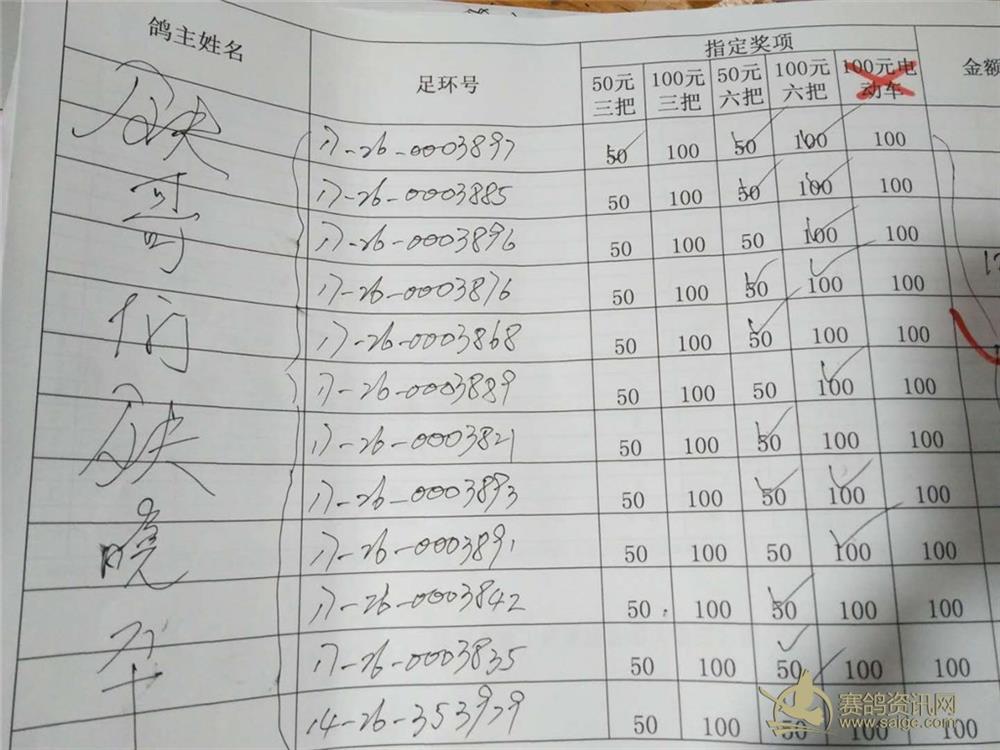 鸽主姓名 足环号 指定奖项 金额
50元三把 100元三把 50元六把 100元六把 100元电动车
17-26-0003897 50 100 50 100 100
17-26-0003885 50 100 50 100 100
17-26-0003896 50 100 50 100 100
17-26-0003876 50 100 50 100 100
17-26-0003868 50 100 50 100 100
17-26-0003889 50 100 50 100 100
17-26-0003821 50 100 50 100 100
17-26-0003893 50 100 50 100 100
17-26-0003891 50 100 50 100 100
17-26-0003842 50 100 50 100 100
17-26-0003835 50 100 50 100 100
14-26-353979 50 100 50 100 100
赛鸽资讯网
www.saigc.com